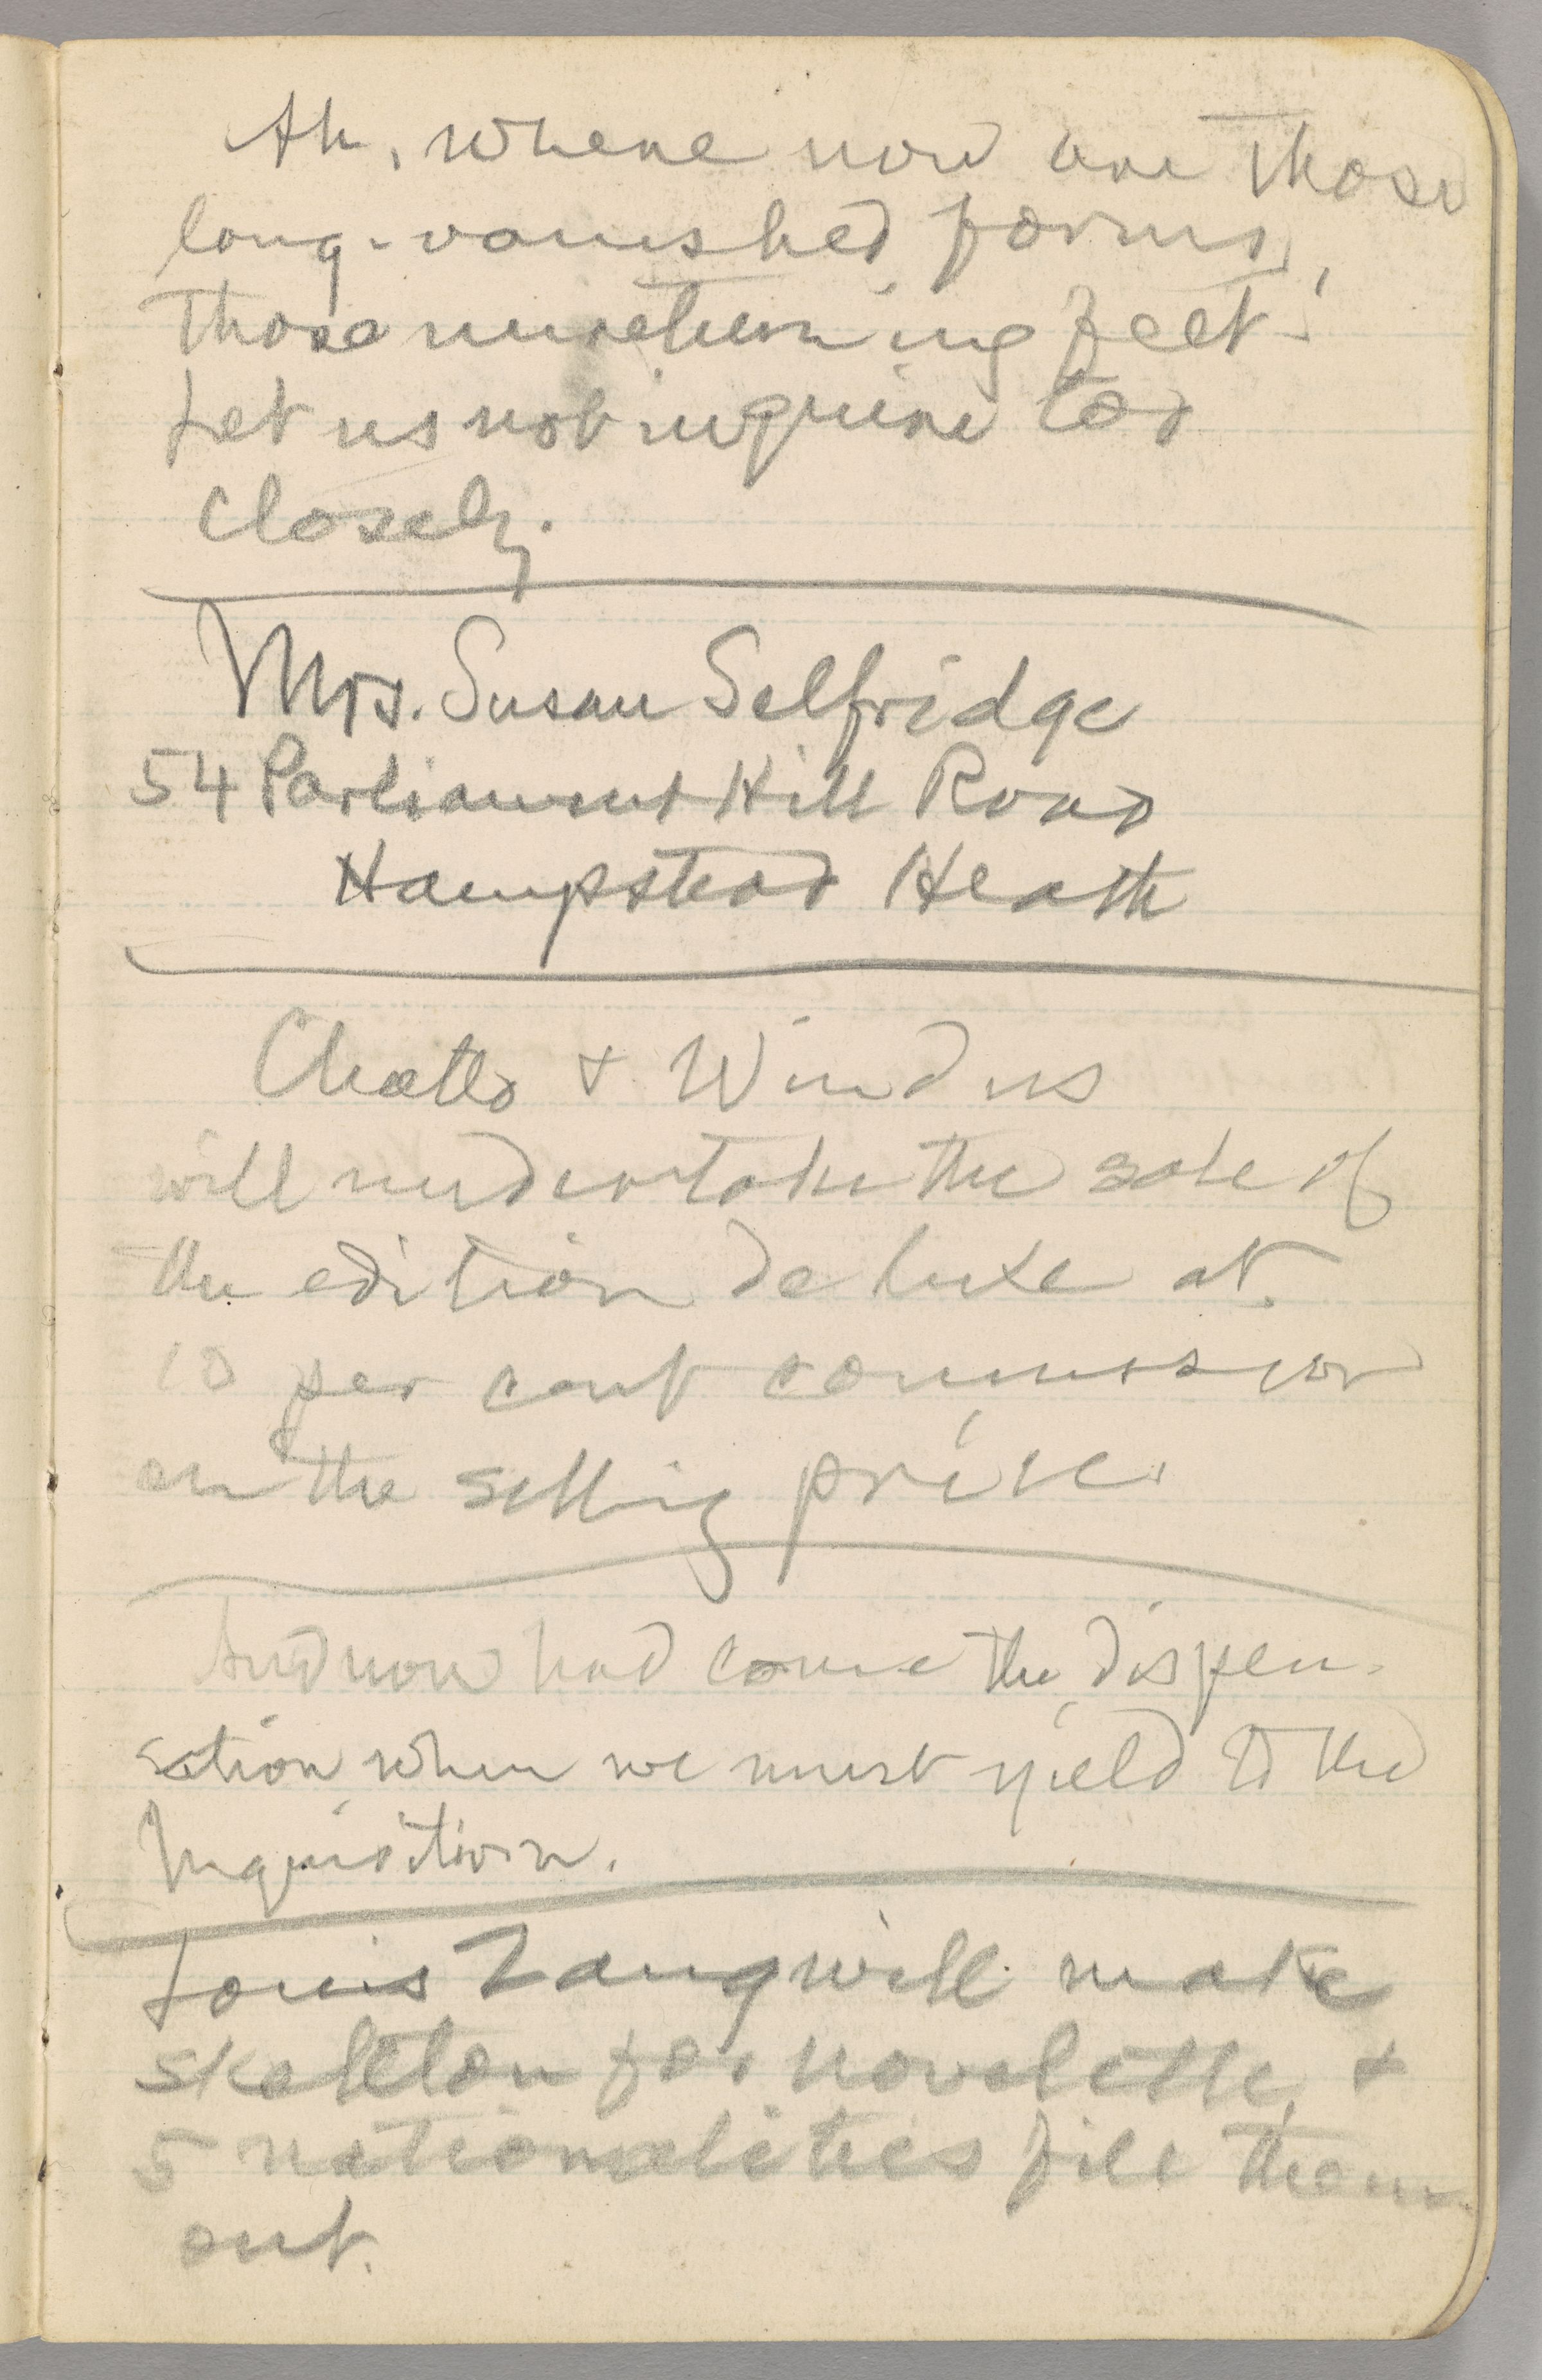 Ah, where now are those
long-vanished forms,
those unreturning feet!
Let us not inquire too
closely.
Mrs. Susan Selfridge
54 Parliament Hill Road
Hampstead Heath
Chatto & Windus
will undertake the sale of
the edition de luxe at
10 per cent commission
on the selling price.
And now had come the dispen-
sation when we must yield to the
Inquisition.
Louis Zangwill make
skeleton for novelette, &
5 nationalities fill them
out.